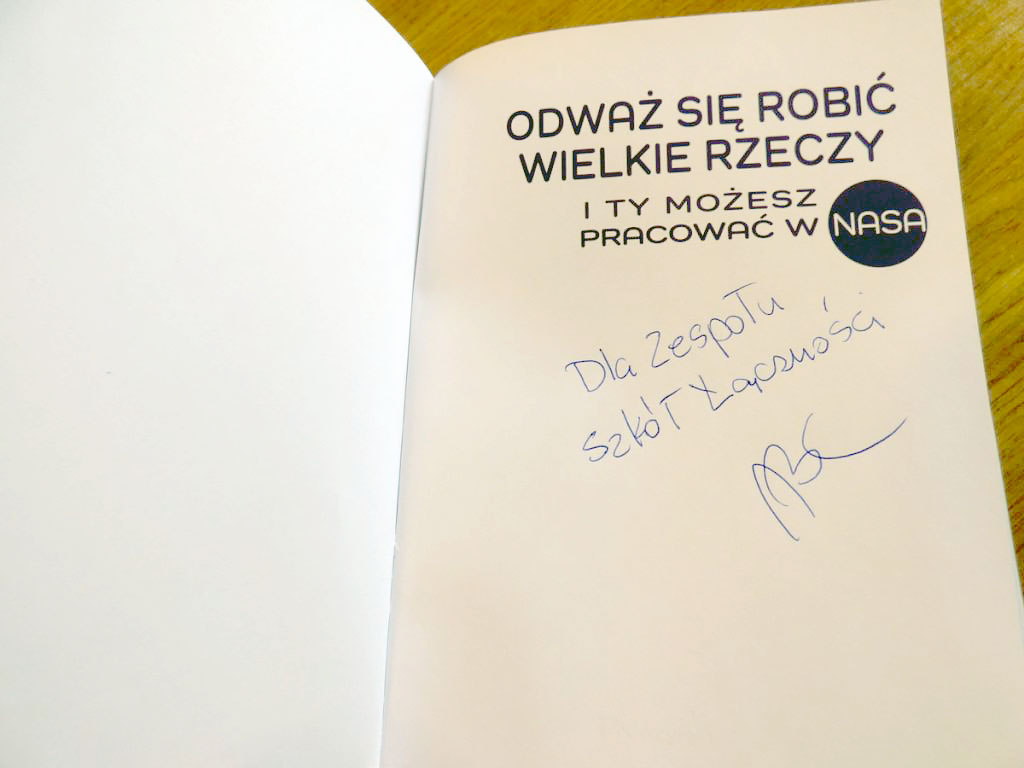 ODWAŻ SIĘ ROBIĆ
WIELKIE RZECZY
I TY MOŻESZ
PRACOWAĆ W NASA
Dla Zespołu
Szkół Łączności